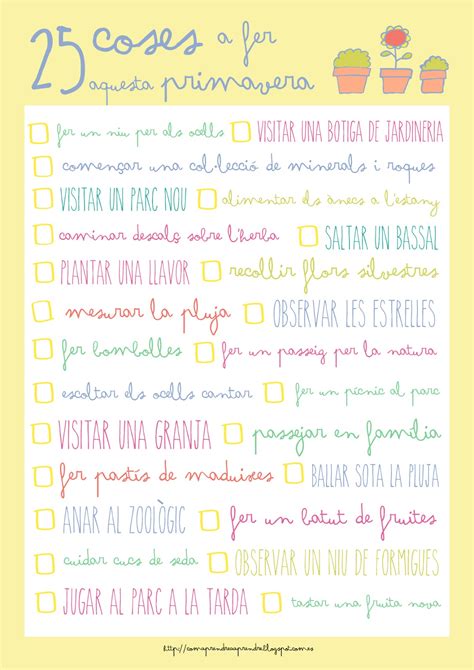 25 coses a fer
aquesta primavera
fer un niu per als ocells VISITAR UNA BOTIGA DE JARDINERIA
començar una col·lecció de minerals i roques
VISITAR UN PARC NOU alimentar els ànecs a l'estany
caminar descalç sobre l'herba SALTAR UN BASSAL
PLANTAR UNA LLAVOR recollir flors silvestres
mesurar la pluja OBSERVAR LES ESTRELLES
fer bombolles fer un passeig per la natura
escoltar els ocells cantar fer un pícnic al parc
VISITAR UNA GRANJA passejar en família
fer pastís de maduixes BALLAR SOTA LA PLUJA
ANAR AL ZOOLÒGIC fer un batut de fruites
cuidar cucs de seda OBSERVAR UN NIU DE FORMIGUES
JUGAR AL PARC A LA TARDA tastar una fruita nova